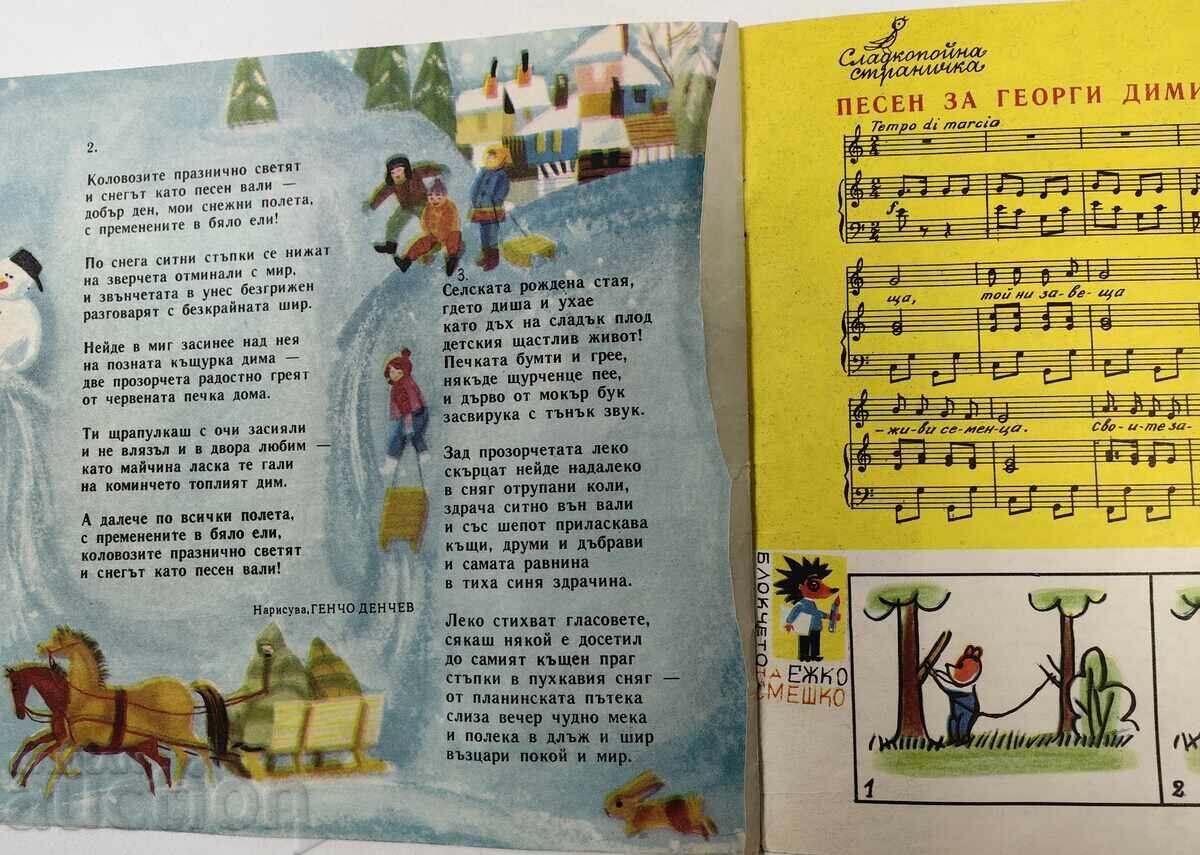 2.
Коловозите празнично светят
и снегът като песен вали —
добър ден, мои снежни полета,
с пременените в бяло ели!
По снега ситни стъпки се нижат
на зверчета отминали с мир,
и звънчетата в унес безгрижен
разговарят с безкрайната шир.
Нейде в миг засинее над нея
на позната къщурка дима —
две прозорчета радостно греят
от червената печка дома.
Ти щрапулкаш с очи засияли
и не влязъл и в двора любим —
като майчина ласка те гали
на коминчето топлият дим.
А далече по всички полета,
с пременените в бяло ели,
коловозите празнично светят
и снегът като песен вали!
Нарисува, ГЕНЧО ДЕНЧЕВ
3.
Селската рождена стая,
гдето диша и ухае
като дъх на сладък плод
детския щастлив живот!
Печката бумти и грее,
някъде щурченце пее,
и дърво от мокър бук
засвирука с тънък звук.
Зад прозорчетата леко
скърцат нейде надалеко
в сняг отрупани коли,
здрача ситно вън вали
и със шепот приласкава
къщи, друми и дъбрави
и самата равнина
в тиха синя здрачина.
Леко стихват гласовете,
сякаш някой е досетил
до самият къщен праг
стъпки в пухкавия сняг —
от планинската пътека
слиза вечер чудно мека
и полека в длъж и шир
възцари покой и мир.
auction
Сладкопойна
страничка
ПЕСЕН ЗА ГЕОРГИ ДИМИ
Tempo di marcia
f
ща, той ни за-ве-ща
-жи-ви се-мен-ца. Сво-и-те за-
БЛОКЧЕТО
НА ЕЖКО
СМЕШКО
1
2